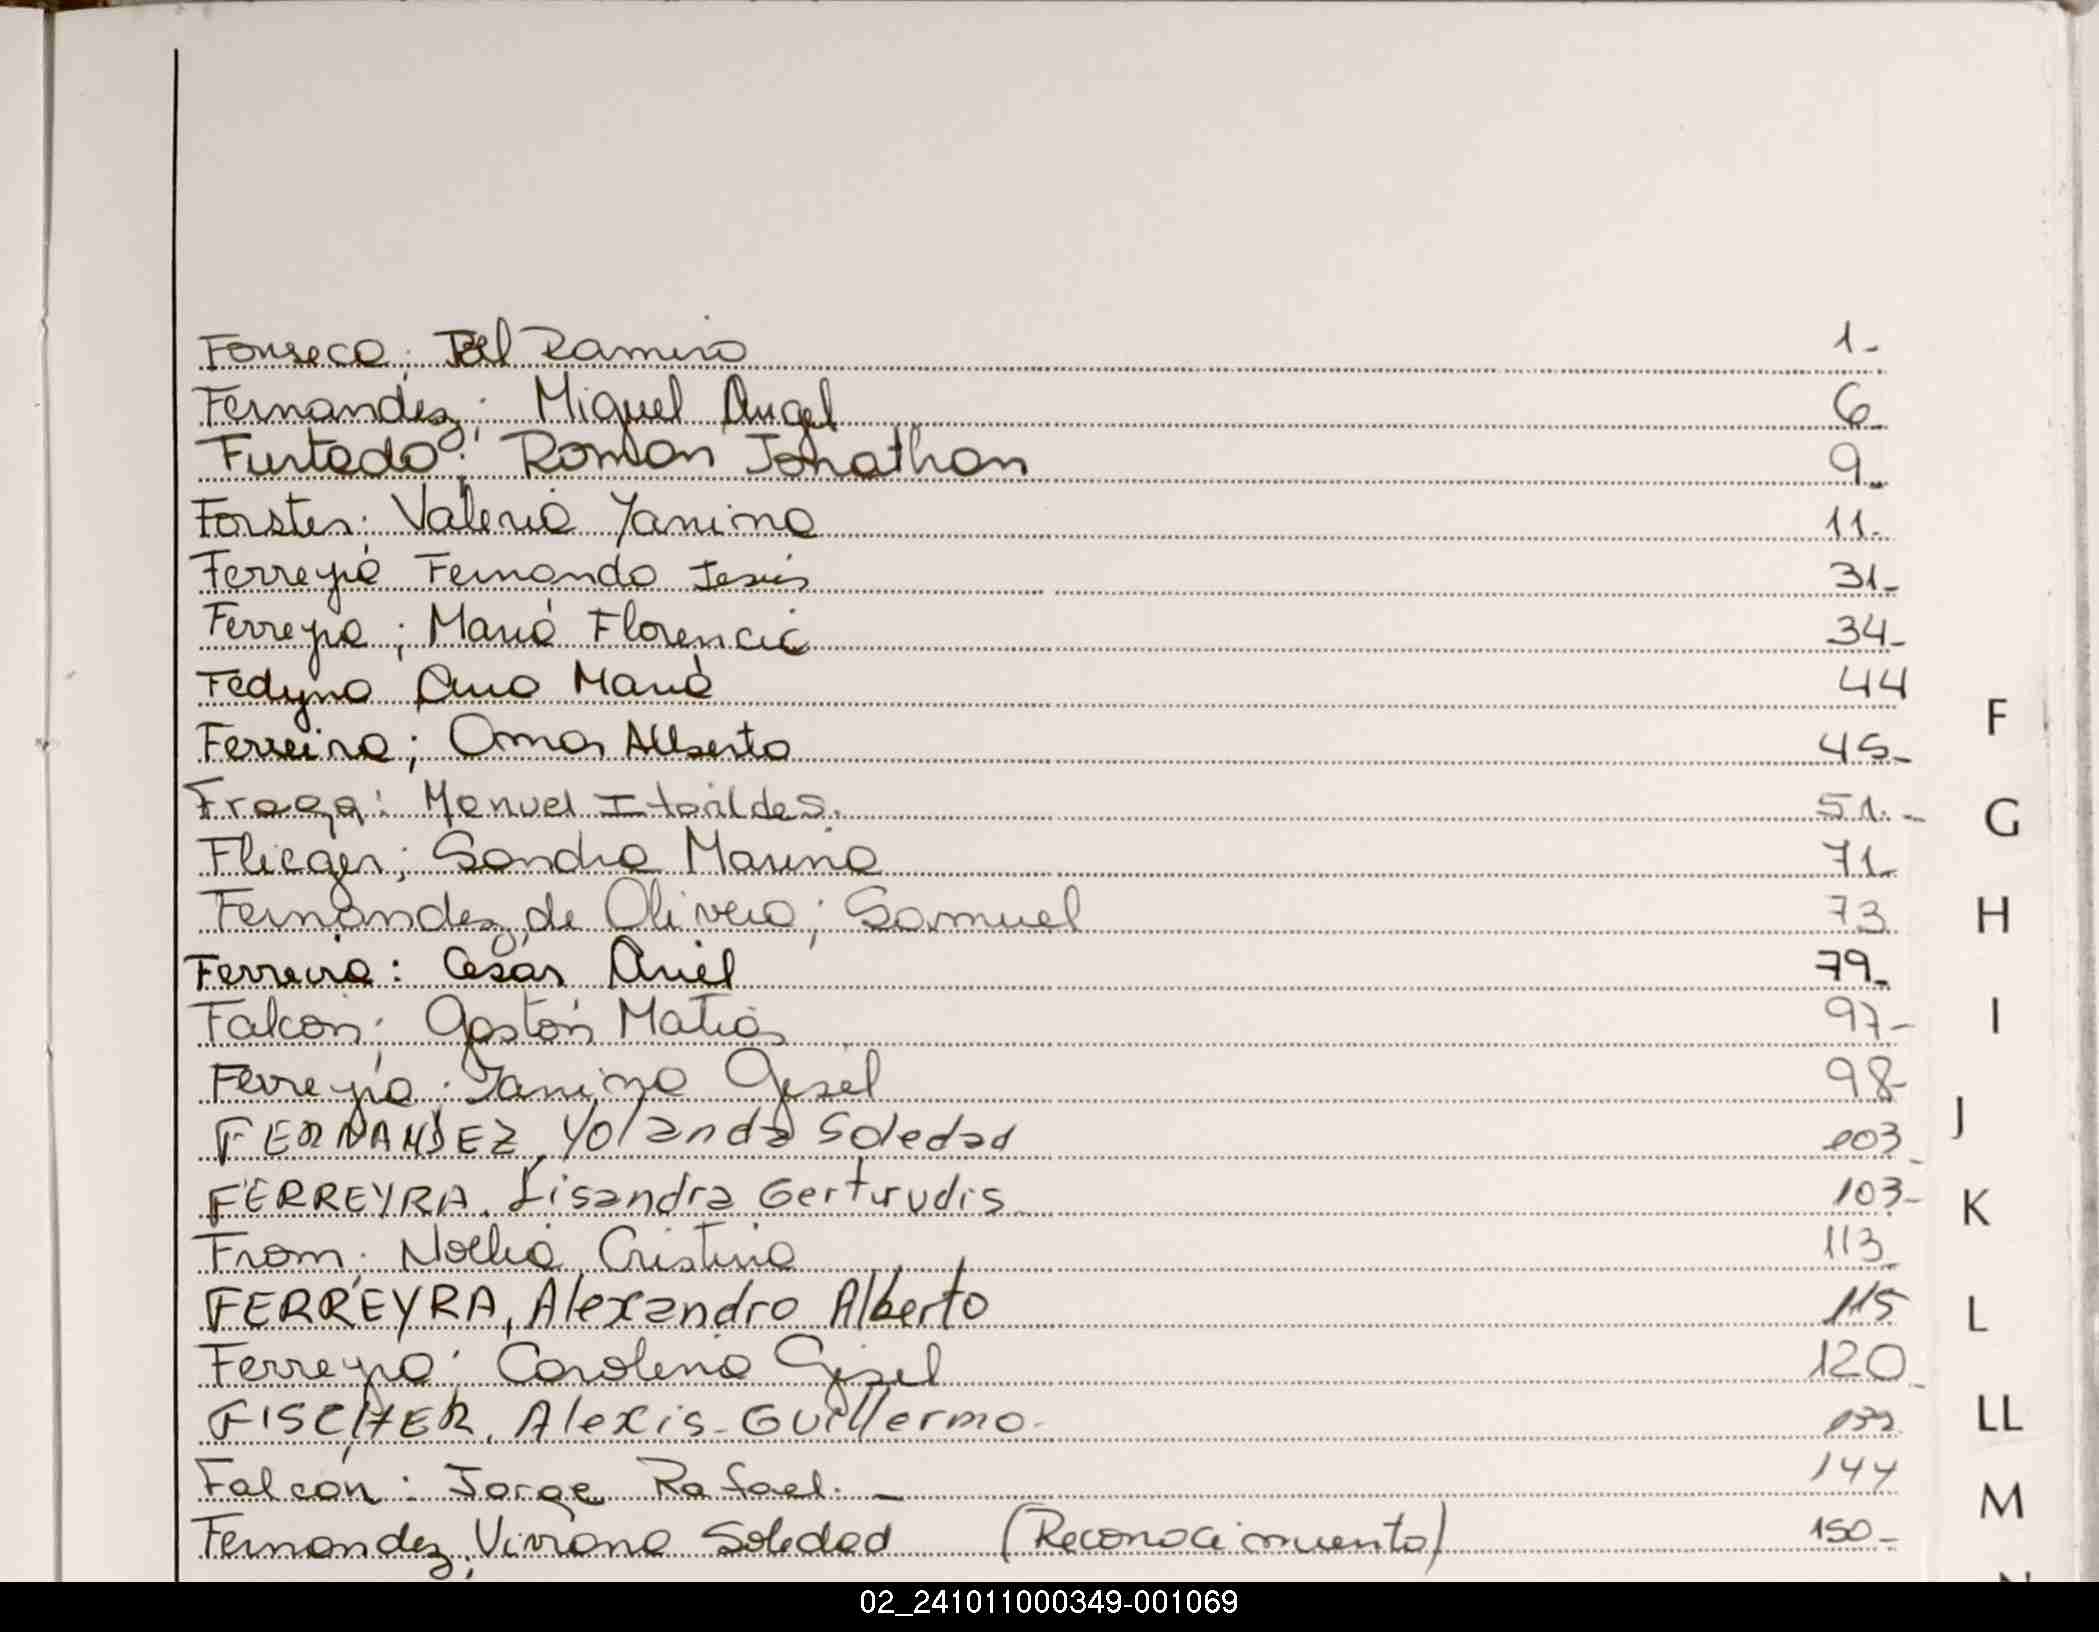 Fonseca; Joel Ramiro 1-
Fernandez; Miguel Angel 6-
Furtado: Roman Jonathan 9-
Forster; Valeria Yanina 11-
Ferreyra Fernando Jesús 31-
Ferreyra; María Florencia 34-
Fedyna Ana María 44
Ferreira; Omar Alberto 45-
Fraga: Manuel 51.-
Flieger; Sandra Marina 71-
Fernandez de Olivera; Samuel 73
Ferreira: Cesar Ariel 79-
Falcon; Gastón Matias 97-
Ferreyra; Yanina Gisel 98-
FERNANDEZ, Yolanda Soledad 103-
FERREYRA. Lisandra Gertrudis 103-
From; Noelia Cristina 113-
FERREYRA, Alexandro Alberto 115
Ferreyra; Carolina Gisel 120-
FISCHER, Alexis-Guillermo-
Falcón: Jorge Rafael.- 144
Fernandez, Viviana Soledad (Reconocimiento) 150-
F
G
H
I
J
K
L
LL
M
02_241011000349-001069